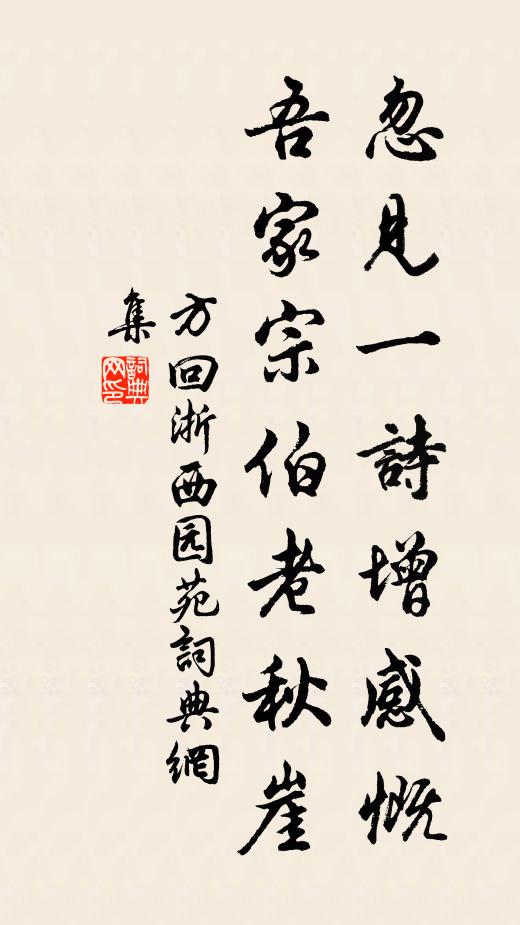 忽見一詩增感慨
吾家宗伯老秋崖
方回浙西园苑詞典網
集
詞典
网印